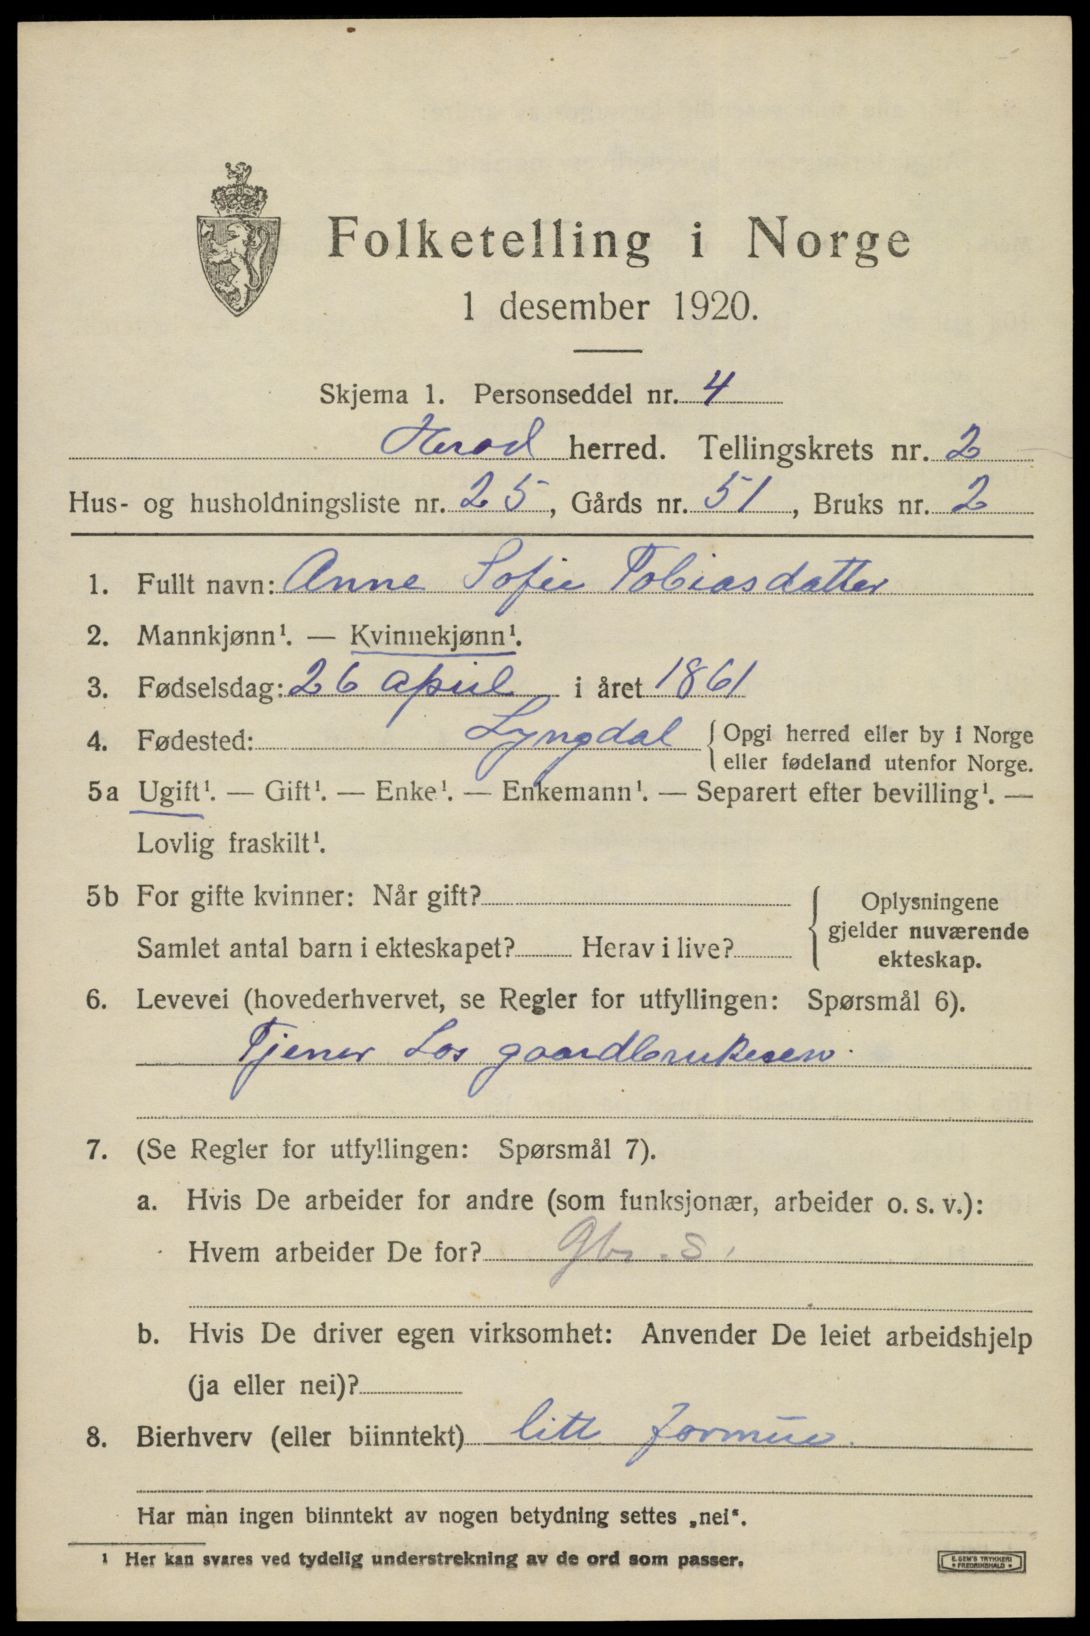 Folketelling i Norge
1 desember 1920.
Skjema 1. Personseddel nr. 4
Herad herred. Tellingskrets nr. 2
Hus- og husholdningsliste nr. 25, Gårds nr. 51, Bruks nr. 2
1. Fullt navn: Anne Sofie Tobiasdatter
2. Mannkjønn¹. — Kvinnekjønn¹.
3. Fødselsdag: 26 april i året 1861
4. Fødested: Lyngdal { Opgi herred eller by i Norge
eller fødeland utenfor Norge.
5a Ugift¹. — Gift¹. — Enke¹. — Enkemann¹. — Separert efter bevilling¹. —
Lovlig fraskilt¹.
5b For gifte kvinner: Når gift?
Samlet antal barn i ekteskapet? Herav i live?
{ Oplysningene
gjelder nuværende
ekteskap.
6. Levevei (hovederhvervet, se Regler for utfyllingen: Spørsmål 6).
Tjener hos gaardbrukeren
7. (Se Regler for utfyllingen: Spørsmål 7).
a. Hvis De arbeider for andre (som funksjonær, arbeider o. s. v.):
Hvem arbeider De for? Gbr. S.
b. Hvis De driver egen virksomhet: Anvender De leiet arbeidshjelp
(ja eller nei)?
8. Bierhverv (eller biinntekt) litt formue.
Har man ingen biinntekt av nogen betydning settes „nei“.
¹ Her kan svares ved tydelig understrekning av de ord som passer.
E. SEM'S TRYKKERI
FREDRIKSHALD